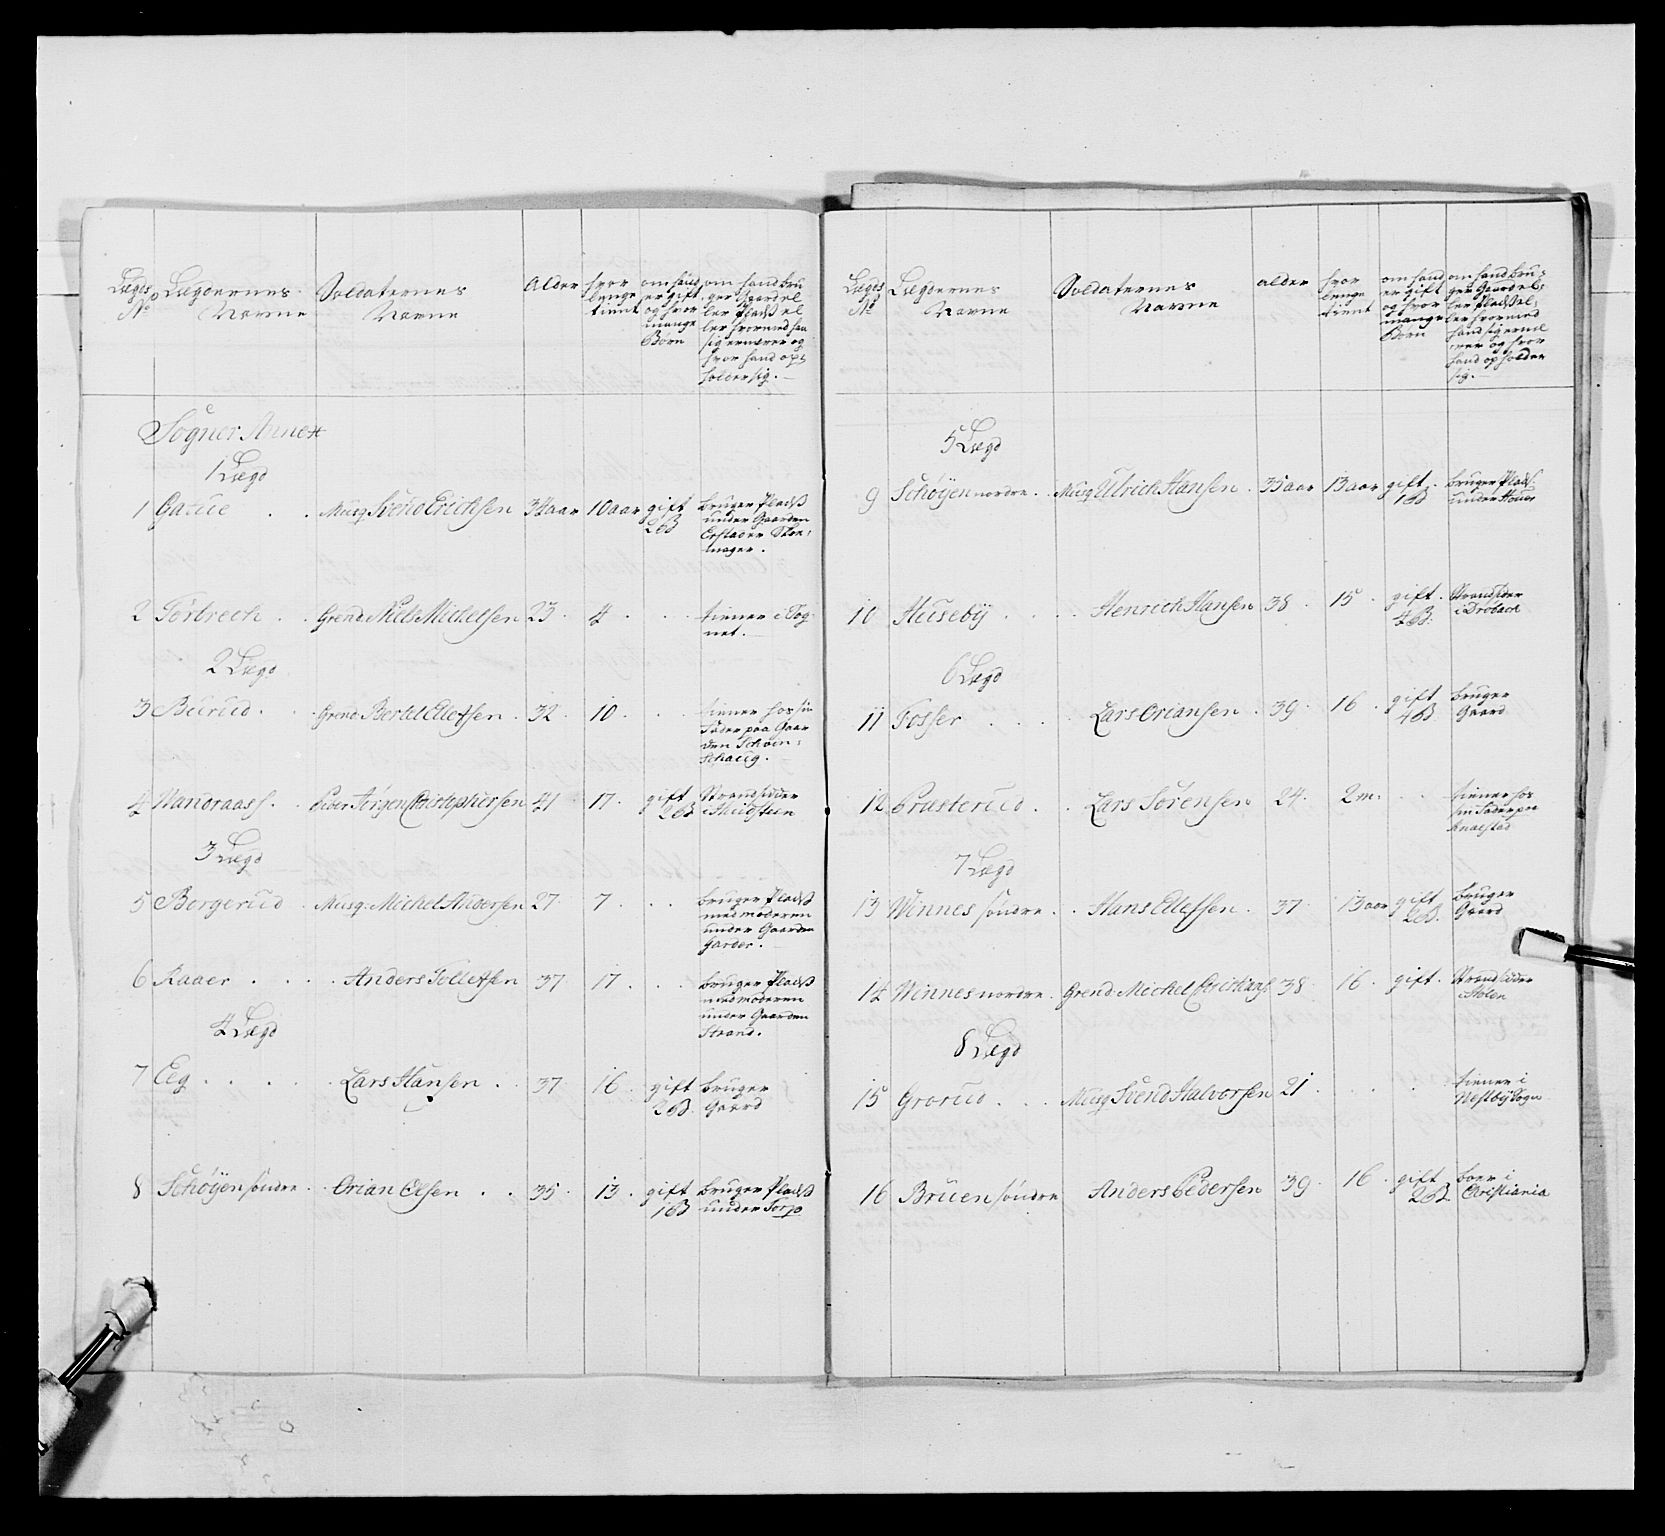 Lægds No
Lægdernes Navne
Soldaternes Navne
Alder
hvor lenge tient
om hand er gift og hvor mange Børn
om hand bru
ger Gaard el
ler Pladß el
ler hvormed han
sig ernærer og
hvor hand op-
holder sig.
Sogner Annex
1 Lægd
1 Gatue . . Musq Svend Erichsen 34 aar 10 aar gift 2 B bruger Pladß
under Gaarden
Erstad er Skoe-
mager.
2 Torbrech . . Grend Niels Michelsen 23 . 4 . . . tiener i Sog
net.
2 Lægd
3 Burud . . Grend Bertel Ellefsen . 32 . 10 . . . tiener hos sin
Fader paa Gaar
den Schoin-
schaug.
4 Wandraass . . Jørgen Christophersen 41 17 . gift 2 B Strandsidder
i
3 Lægd
5 Borgerud . Musq. Michel Andersen 27 . 7 . . . bruger Pladß
med moderen
under Gaarden
Garder.
6 Raaer . . . . Anders Tollefsen 37 17 . . . bruger Pladß
med moderen
under Gaarden
Strand.
4 Lægd
7 Eeg . . . . . Lars Hansen . . 37 16 . gift 2 B. bruger
Gaard
8 Schøyen søndre . Orian Olsen . . 35 . 13 . gift 1 B bruger Pladß
under Torp
Lægds No
Lægdernes Navne
Soldaternes Navne
alder
hvor lenge tient
om hand er gift og hvor mange Børn
om hand bru-
ger Gaard el-
ler Pladß el-
ler hvormed
hand sig ernæ
rer og hvor
hand opholder
sig.
5 Lægd
9 Schøyen nordre . . Musq Ulrich Hansen . 35 aar 13 aar gift . 1 B bruger Plads
under Houer
10 Huseby . . . . Henrich Hansen 38 . 15 . gift . 4 B. Strandsider
i Drøbach
6 Lægd
11 Fosser . . . . Lars Oriansen . 39 . 16 . gift 4 B bruger
Gaard
12 Prusterud . . . Lars Sørensen 24 . 2 m. . . tiener hos
sin Fader paa
Knaestad
7 Lægd
13 Winnes søndre . . Hans Ellefsen . 37 . 13 aar gift 2 B. bruger
Gaard
14 Winnes nordre . Grend. Michel Christians. 38 . 16 . gift . Strandsidder
i Holen
8 Lægd
15 Grorud . . . Musq Svend Halvorsen 21 . . . tiener i
Nestby Sogn
16 Bruen søndre Anders Pedersen 39 . 16 . gift 2 B. boer i
Christiania